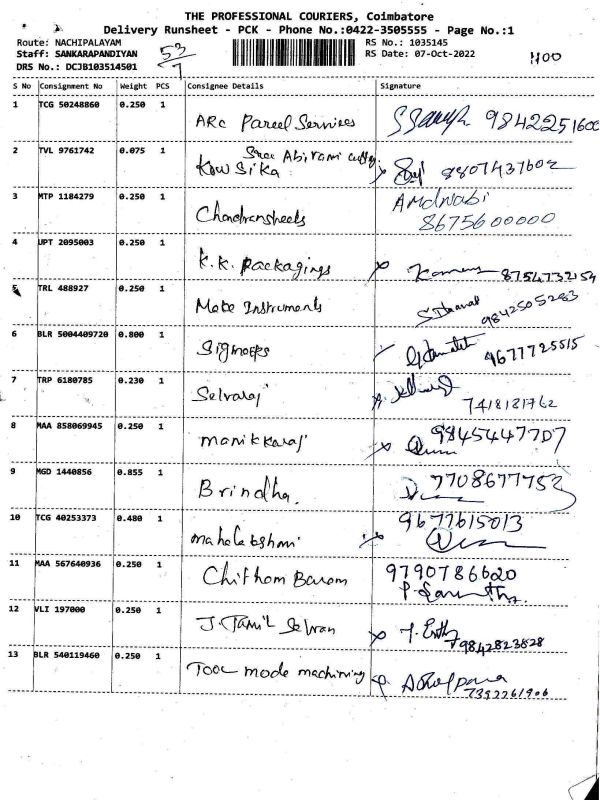 THE PROFESSIONAL COURIERS, Coimbatore
Delivery Runsheet - PCK - Phone No.:0422-3505555 - Page No.:1
Route: NACHIPALAYAM RS No.: 1035145
Staff: SANKARAPANDIYAN 53/7 RS Date: 07-Oct-2022 1100
DRS No.: DCJB103514501
S No Consignment No Weight PCS Consignee Details Signature
1 TCG 50248860 0.250 1 ARC Parcel Services 9842251600
2 TVL 9761742 0.075 1 Sree Abirami
Kowsika 9807437602
3 MTP 1184279 0.250 1 Chandransheels AMdnabi
8675600000
4 UPT 2095003 0.250 1 K.K. Packagings 8754732154
5 TRL 488927 0.250 1 Make Instruments 9842505283
6 BLR 5004409720 0.800 1 9677725515
7 TRP 6180785 0.230 1 Selvaraj 7418181762
8 MAA 858069945 0.250 1 manikkaraj 9845447707
9 MGD 1440856 0.855 1 Brindha. 7708677752
10 TCG 40253373 0.480 1 mahalakshmi 9677615013
11 MAA 567640936 0.250 1 Chithambaram 9790786620
12 VLI 197000 0.250 1 J. Tamil Selvan 9842823828
13 BLR 540119460 0.250 1 Tool mode machining 7392261906